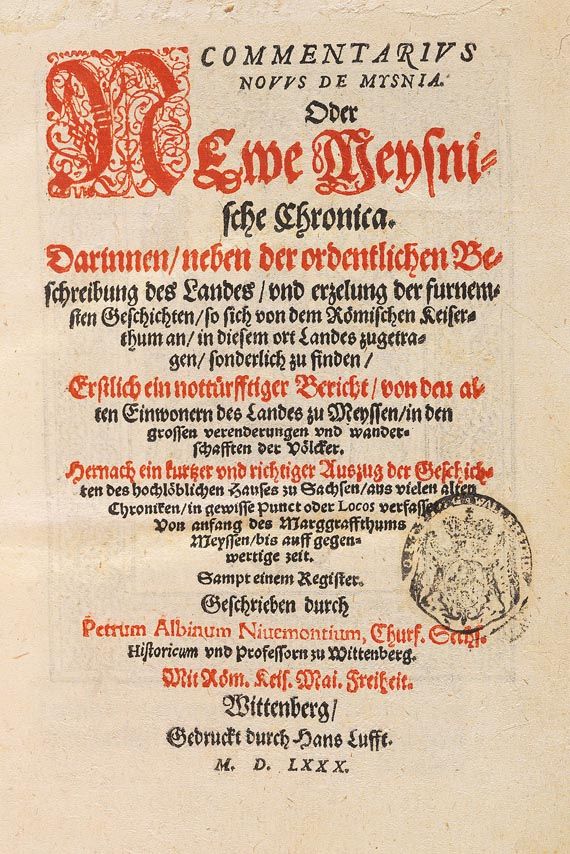 COMMENTARIVS
NOVVS DE MYSNIA.
Oder
NEwe Meysni-
sche Chronica.
Darinnen/neben der ordentlichen Be-
schreibung des Landes/vnd erzelung der furnem-
sten Geschichten/so sich von dem Römischen Keiser-
thum an/in diesem ort Landes zugetra-
gen/sonderlich zu finden/
Erstlich ein nottürfftiger Bericht/von den al-
ten Einwonern des Landes zu Meyssen/in den
grossen verenderungen vnd wander-
schafften der Völcker.
Hernach ein kurtzer vnd richtiger Auszug der Geschich-
ten des hochlöblichen Hauses zu Sachsen/aus vielen alten
Chroniken/in gewisse Punct oder Locos verfasset
Von anfang des Marggraffthums
Meyssen/bis auff gegen-
wertige zeit.
Sampt einem Register.
Geschrieben durch
Petrum Albinum Nivemontium, Churf. Sechs.
Historicum vnd Professorn zu Wittenberg.
Mit Röm. Keis. Mai. Freiheit.
Wittenberg/
Gedruckt durch Hans Lufft.
M. D. LXXX.